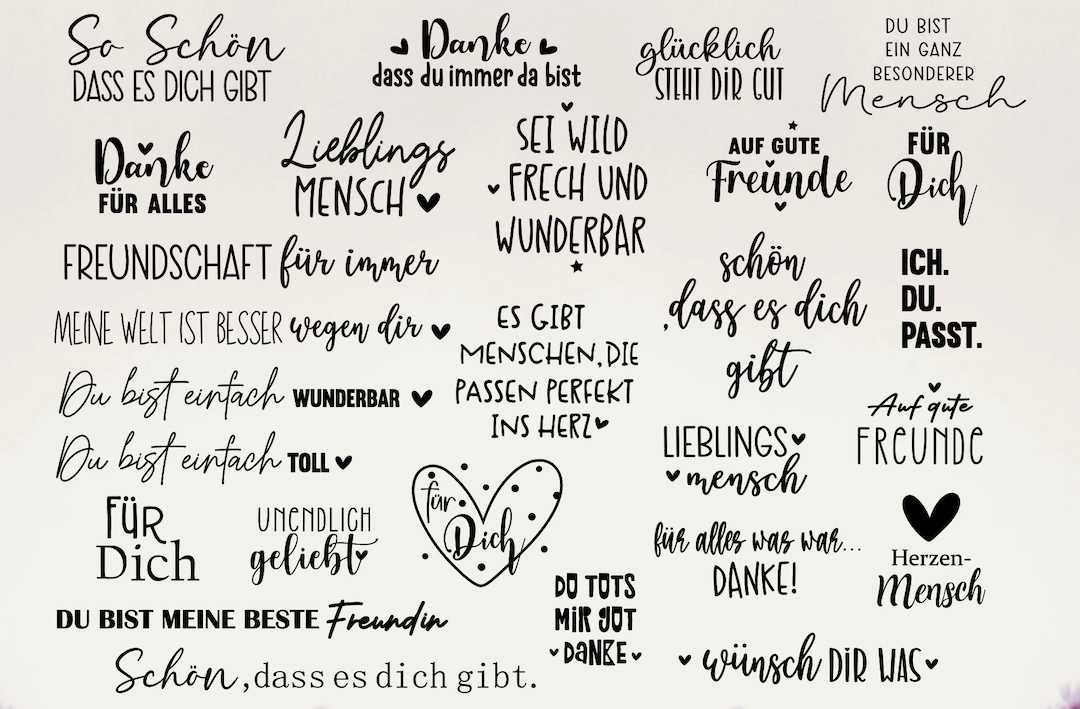 So Schön
DASS ES DICH GIBT
Danke
dass du immer da bist
glücklich
STEHT DIR GUT
DU BIST
EIN GANZ
BESONDERER
Mensch
Danke
FÜR ALLES
Lieblings
MENSCH
SEI WILD
FRECH UND
WUNDERBAR
AUF GUTE
Freunde
FÜR
Dich
FREUNDSCHAFT für immer
schön
,dass es dich
gibt
ICH.
DU.
PASST.
MEINE WELT IST BESSER wegen dir
ES GIBT
MENSCHEN, DIE
PASSEN PERFEKT
INS HERZ
Du bist einfach WUNDERBAR
Auf gute
FREUNDE
Du bist einfach TOLL
LIEBLINGS
mensch
FÜR
Dich
UNENDLICH
geliebt
für
Dich
für alles was war...
DANKE!
Herzen-
Mensch
DU TUTS
MIR GUT
DANKE
DU BIST MEINE BESTE Freundin
Schön, dass es dich gibt.
wünsch DIR WAS